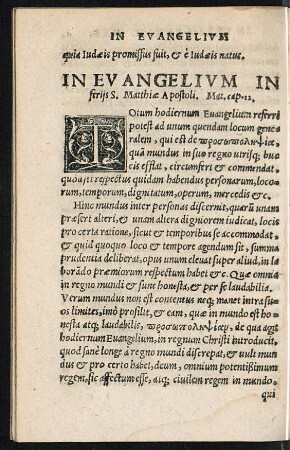 IN EVANGELIVM
quia Iudæis promissus suit, & è Iudæis natus.
IN EVANGELIVM IN
ferijs S. Matthiæ Apostoli. Mat. cap. 11.
TOtum hodiernum Euangelium referri
potest ad unum quendam locum gene
ralem, qui est de προσωποληψίας,
quã mundus in suo regno utrisq; buc
cis efflat, circumfert & commendat,
quoties respectus quidam habendus personarum, loco-
rum, temporum, dignitatum, operum, mercedis &c.
Hinc mundus inter personas discernit, quarũ unam
præfert alteri, & unam altera digniorem iudicat, locis
pro certa ratione, sicut & temporibus se accommodat,
& quid quoquo loco & tempore agendum sit, summa
prudentia deliberat, opus unum eleuat super aliud, in la-
borãdo præmiorum respectum habet &c. Quæ omnia
in regno mundi & sunt honesta, & per se laudabilia.
Verum mundus non est contentus neq; manet intra su-
os limites, imò prosilit, & eam, quæ in mundo est ho-
nesta atq; laudabilis, προσωποληψίαν, de qua agit
hodiernum Euangelium, in regnum Christi introducit,
quod sanè longe à regno mundi discrepat, & uult mun
dus & pro certo habet, deum, omnium potentissimum
regem, sic affectum esse, atq; ciuilem regem in mundo,
qui